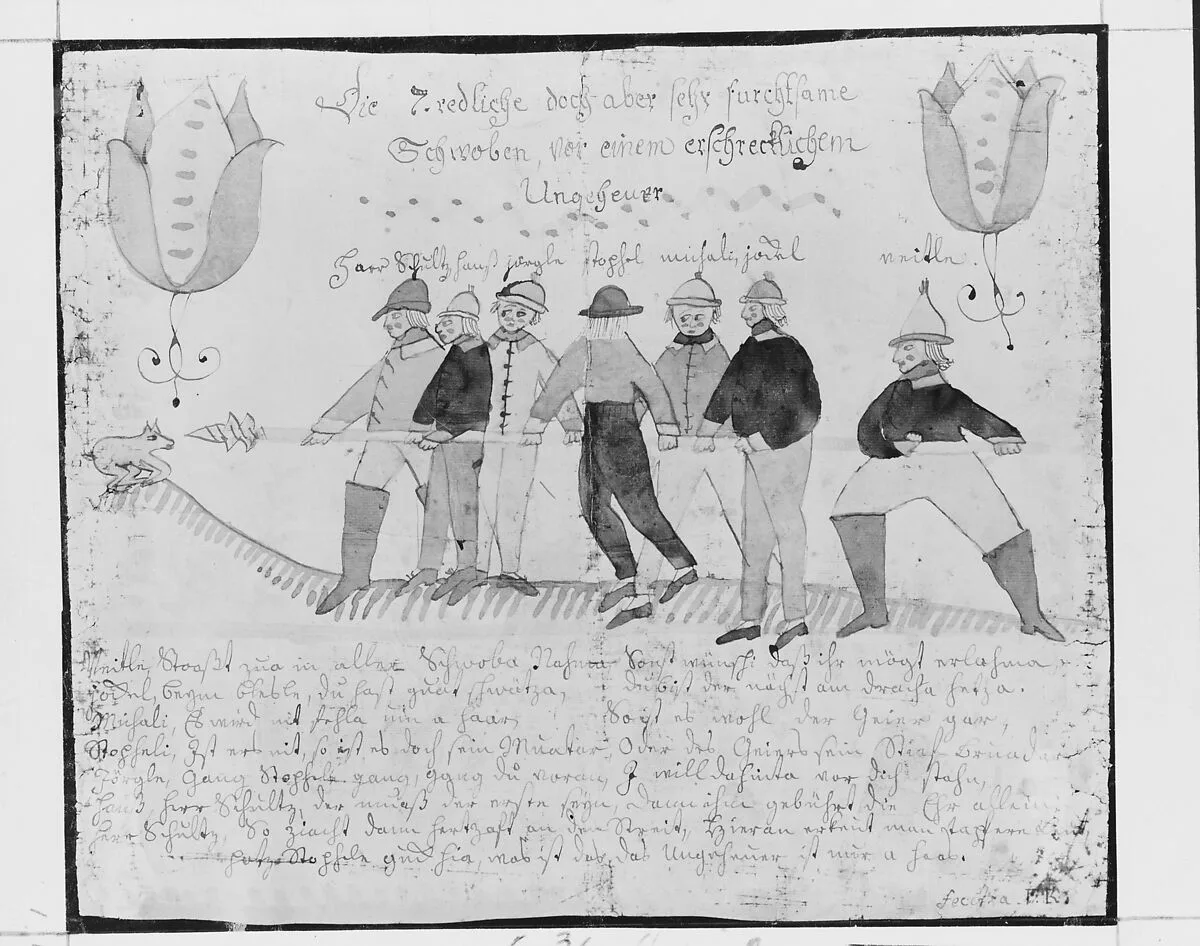 Die 7. redliche doch aber sehr furchtsame
Schwoben, vor einem erschrecklichem
Ungeheuer.
Herr Schultz, hanß, jörgle stophel michali, jockel veitle.
Veitle, Stooßt zua in aller Schwoba Nahma Sonst wünsch i daß ihr mögt erlahma,
jockel, beym blesle, du hast guat schwatza, du bist der nächst am dracha hetza.
Michali, Es wird nit fehla um a haar, So ist es wohl der Geier gar,
Stopheli, Ist ers nit, so ist es doch sein Muatar, Oder des Geiers sein Stiaf bruadar
Jörgle, Gang Stophele gang, gang du voran, I will dahinta vor dich stahn,
hanß, herr Schultz, der muaß der erste seyn, Dann ihm gebührt die Ehr allein,
herr Schultz, So ziacht dann hertzaft an den Streit, Hieran erkent man tapfere
potz Stophele guck hia, was ist das, das Ungeheuer ist nur a haas.
fecit a. F. K.